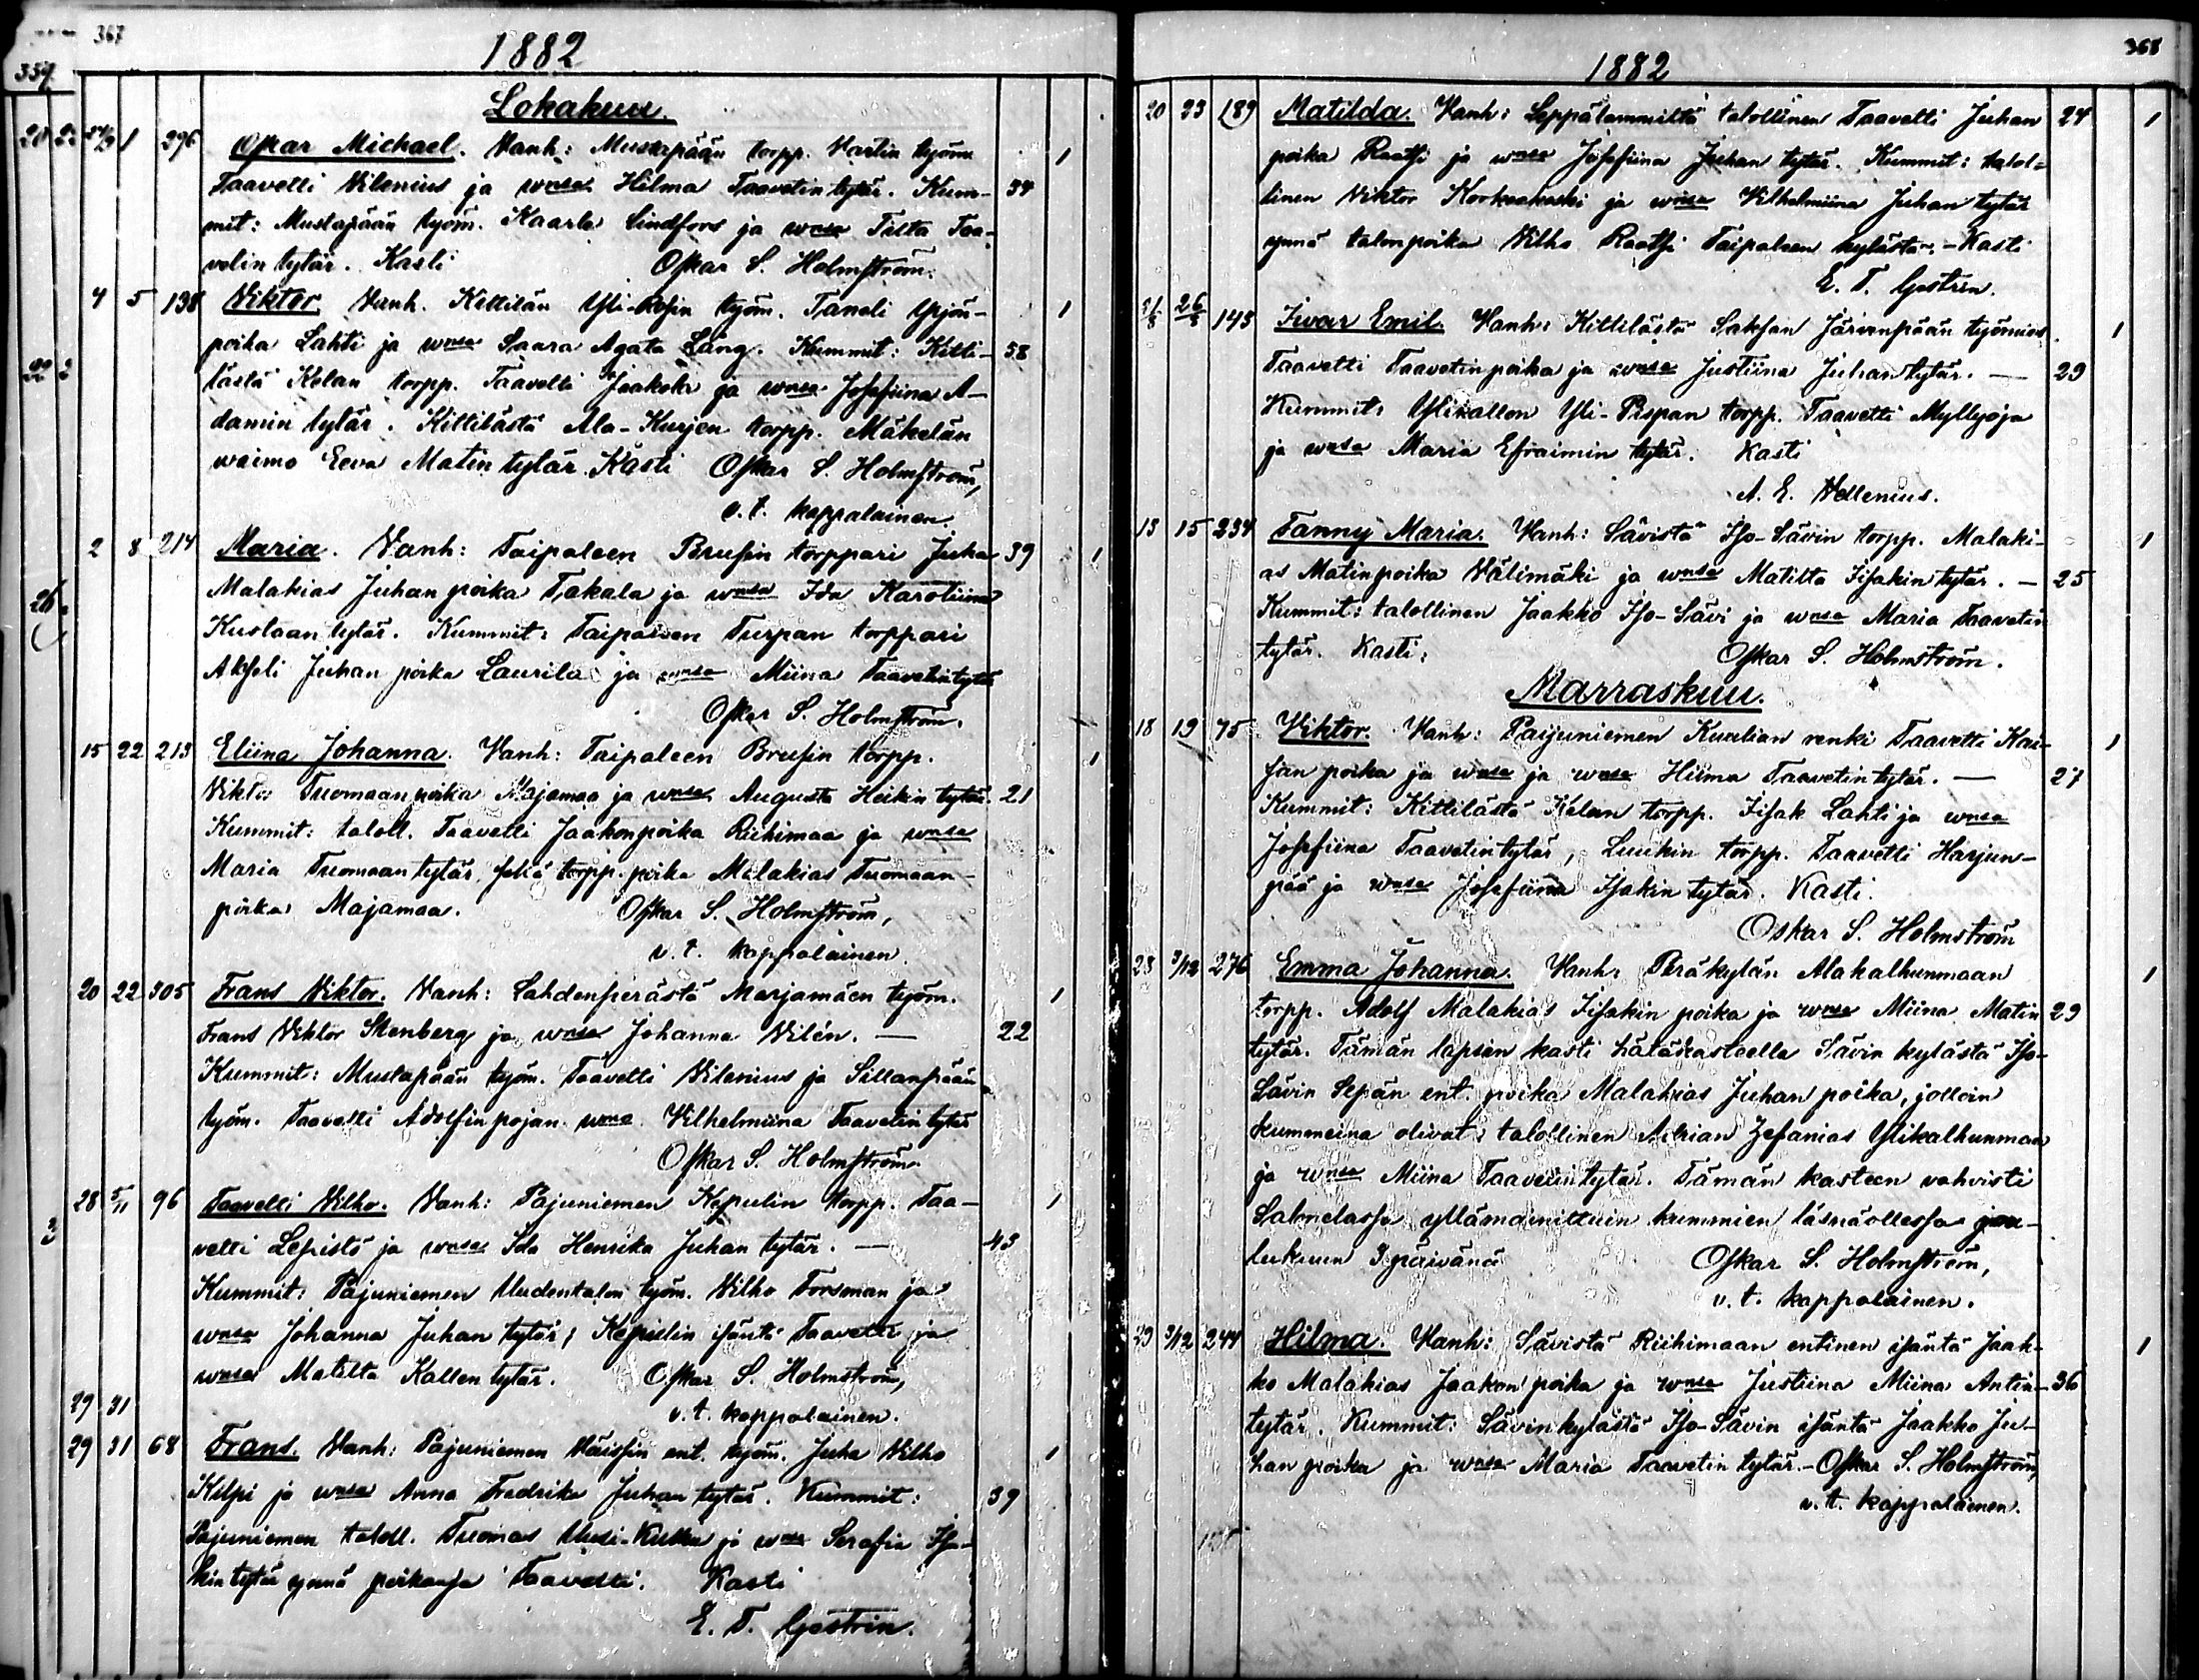 367
1882
359
Lokakuu.
20 1 296 Oskar Michael. Vanh: Mustapään torpp. Martin työm. 1
Taavetti Vilenius ja wmsa Hilma Taavetin tytär. Kum- 34
mit: Mustapään työm. Kaarlo Lindfors ja wmsa Tilta Taa-
vetin tytär. Kasti Oskar S. Holmström.
4 5 138 Viktor. Vanh. Kittilän Yli-Rosin työm. Taneli Yrjön- 1
poika Lahti ja wmsa Saara Agata Lång. Kummit: Kitti- 38
lästä Kelan torpp. Taavetti Jaakola ja wmsa Josefiina A-
damin tytär. Kittilästä Ala-Kurjen torpp. Mäkelän
waimo Eeva Matin tytär. Kasti Oskar S. Holmström,
v.t. kappalainen.
2 8 214 Maria. Vanh: Taipaleen Brusin torppari Juha 39 1
Malakias Juhan poika Takala ja wmsa Ida Karoliina
Kustaan tytär. Kummit: Taipaleen Turpan torppari
Akseli Juhan poika Laurila ja wmsa Miina Taavetin tytär
Oskar S. Holmström.
15 22 213 Eliina Johanna. Vanh: Taipaleen Brusin torpp. 1
Viktor Tuomaan poika Majamaa ja wmsa Augusta Heikin tytär. 21
Kummit: taloll. Taavetti Jaakonpoika Riihimaa ja wmsa
Maria Tuomaan tytär, sekä torpp. poika Malakias Tuomaan-
poika Majamaa. Oskar S. Holmström,
v.t. kappalainen.
20 22 305 Frans Viktor. Vanh: Lahdenperästä Marjamäen työm. 1
Frans Viktor Stenberg ja wmsa Johanna Vilén. — 22
Kummit: Mustapään työm. Taavetti Vilenius ja Sillanpään
työm. Taavetti Adolfin pojan wmo Vilhelmiina Taavetin tytär
Oskar S. Holmström
28 5/11 96 Taavetti Vilho. Vanh: Pajuniemen Kepulin torpp. Taa- 1
vetti Lepistö ja wmsa Ida Henrika Juhan tytär. — 43
Kummit: Pajuniemen Uudentalon työm. Vilho Forsman ja
wmsa Johanna Juhan tytär; Kepulin isäntä Taavetti ja
wmsa Matilta Kallen tytär. Oskar S. Holmström,
v.t. kappalainen.
29 31
29 31 68 Frans. Vanh: Pajuniemen Väissin ent. työm. Juha Vilho 1
Kilpi ja wmsa Anna Fredrika Juhan tytär. Kummit: 39
Pajuniemen taloll. Tuomas Uusi-Kulku ja wmsa Serafia Isa-
kin tytär ynnä poikansa Taavetti. Kasti
E. T. Gestrin.
368
1882
20 23 189 Matilda. Vanh: Leppälammilta talollinen Taavetti Juhan 24 1
poika Raatsi ja wmsa Josefiina Juhan tytär. Kummit: talol-
linen Viktor Korkeakoski ja wmsa Vilhelmiina Juhan tytär
ynnä talonpoika Vilho Raatsi Taipaleen kylästä. - Kasti
E. T. Gestrin.
21/8 26/8 143 Iivar Emil. Vanh: Kittilästä Saksan Järvenpään työmies 1
Taavetti Taavetin poika ja wmsa Justiina Juhan tytär. — 29
Kummit: Ylikallon Yli-Pispan torpp. Taavetti Myllyoja
ja wmsa Maria Efraimin tytär. Kasti
A. E. Vellenius.
13 15 234 Fanny Maria. Vanh: Sävistä Iso-Sävin torpp. Malaki- 1
as Matinpoika Välimäki ja wmsa Matilta Iisakin tytär. — 25
Kummit: talollinen Jaakko Iso-Sävi ja wmsa Maria Taavetin
tytär. Kasti: Oskar S. Holmström.
Marraskuu.
18 19 75 Viktor. Vanh: Pajuniemen Kurelian renki Taavetti Kai- 1
san poika ja wmsa ja wmsa Hilma Taavetin tytär. — 27
Kummit: Kittilästä Kelan torpp. Iisak Lahti ja wmsa
Josefiina Taavetin tytär, Luukin torpp. Taavetti Harjun-
pää ja wmsa Josefiina Isakin tytär. Kasti.
Oskar S. Holmström
28 3/12 276 Emma Johanna. Vanh: Peräkylän Alakalhunmaan 1
torpp. Adolf Malakias Iisakin poika ja wmsa Miina Matin 29
tytär. Tämän lapsen kasti hätäkasteella Sävin kylästä Iso-
Sävin Sepän ent. poika Malakias Juhan poika, jolloin
kummeina olivat: talollinen Adrian Zefanias Ylikalhunmaa
ja wmsa Miina Taavetin tytär. Tämän kasteen vahvisti
Salmelassa yllämainittuin kummien läsnäollessa jou-
lukuun 3 päivänä Oskar S. Holmström,
v.t. kappalainen.
29 3/12 244 Hilma. Vanh: Sävistä Riihimaan entinen isäntä Jaak- 1
ko Malakias Jaakon poika ja wmsa Justiina Miina Antin- 36
tytär. Kummit: Sävin kylästä Iso-Sävin isäntä Jaakko Ju-
han poika ja wmsa Maria Taavetin tytär. - Oskar S. Holmström,
v.t. kappalainen.